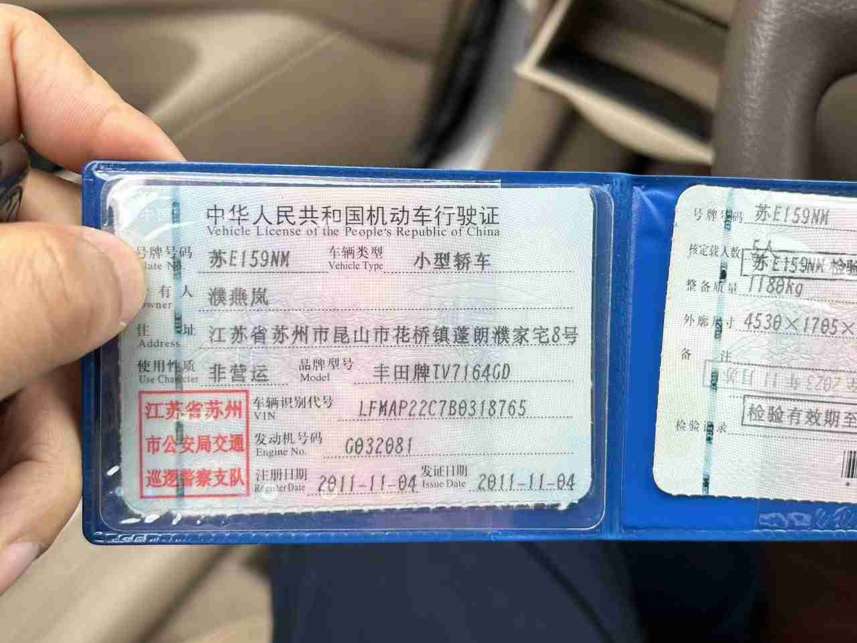 中华人民共和国机动车行驶证
Vehicle License of the People's Republic of China
号牌号码 苏E159NM 车辆类型 小型轿车
Plate No. Vehicle Type
有人 濮燕岚
Owner
住 址 江苏省苏州市昆山市花桥镇蓬朗濮家宅8号
Address
使用性质 非营运 品牌型号 丰田牌TV7164GD
Use Character Model
江苏省苏州
市公安局交通
巡逻警察支队
车辆识别代号 LFMAP22C7B0318765
VIN
发动机号码 G032081
Engine No.
注册日期 2011-11-04 发证日期 2011-11-04
Register Date Issue Date
号牌号码 苏E159NM
核定载人数 5人
苏E159NM 检验
整备质量 1180kg
外廓尺寸 4530×1705×
备 注
检验记录
检验有效期至